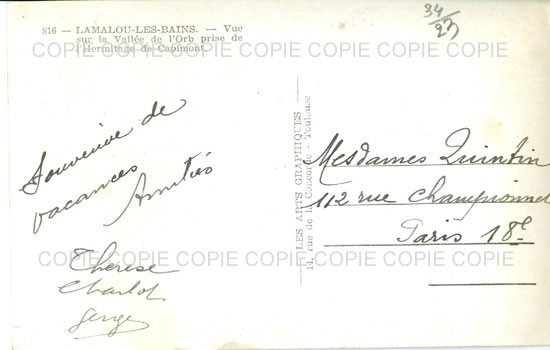 816 — LAMALOU-LES-BAINS. — Vue
sur la Vallée de l'Orb prise de
l'Hermitage de Capimont.
COPIE COPIE COPIE COPIE COPIE COPIE COPIE COPIE
34/
Souvenir de
vacances
Amitiés
Thérèse
Charlot
LES ARTS GRAPHIQUES
14, rue de la Concorde - Toulouse
Mesdames Quintin
112 rue Championnet
Paris 18e
COPIE COPIE COPIE COPIE COPIE COPIE COPIE COPIE